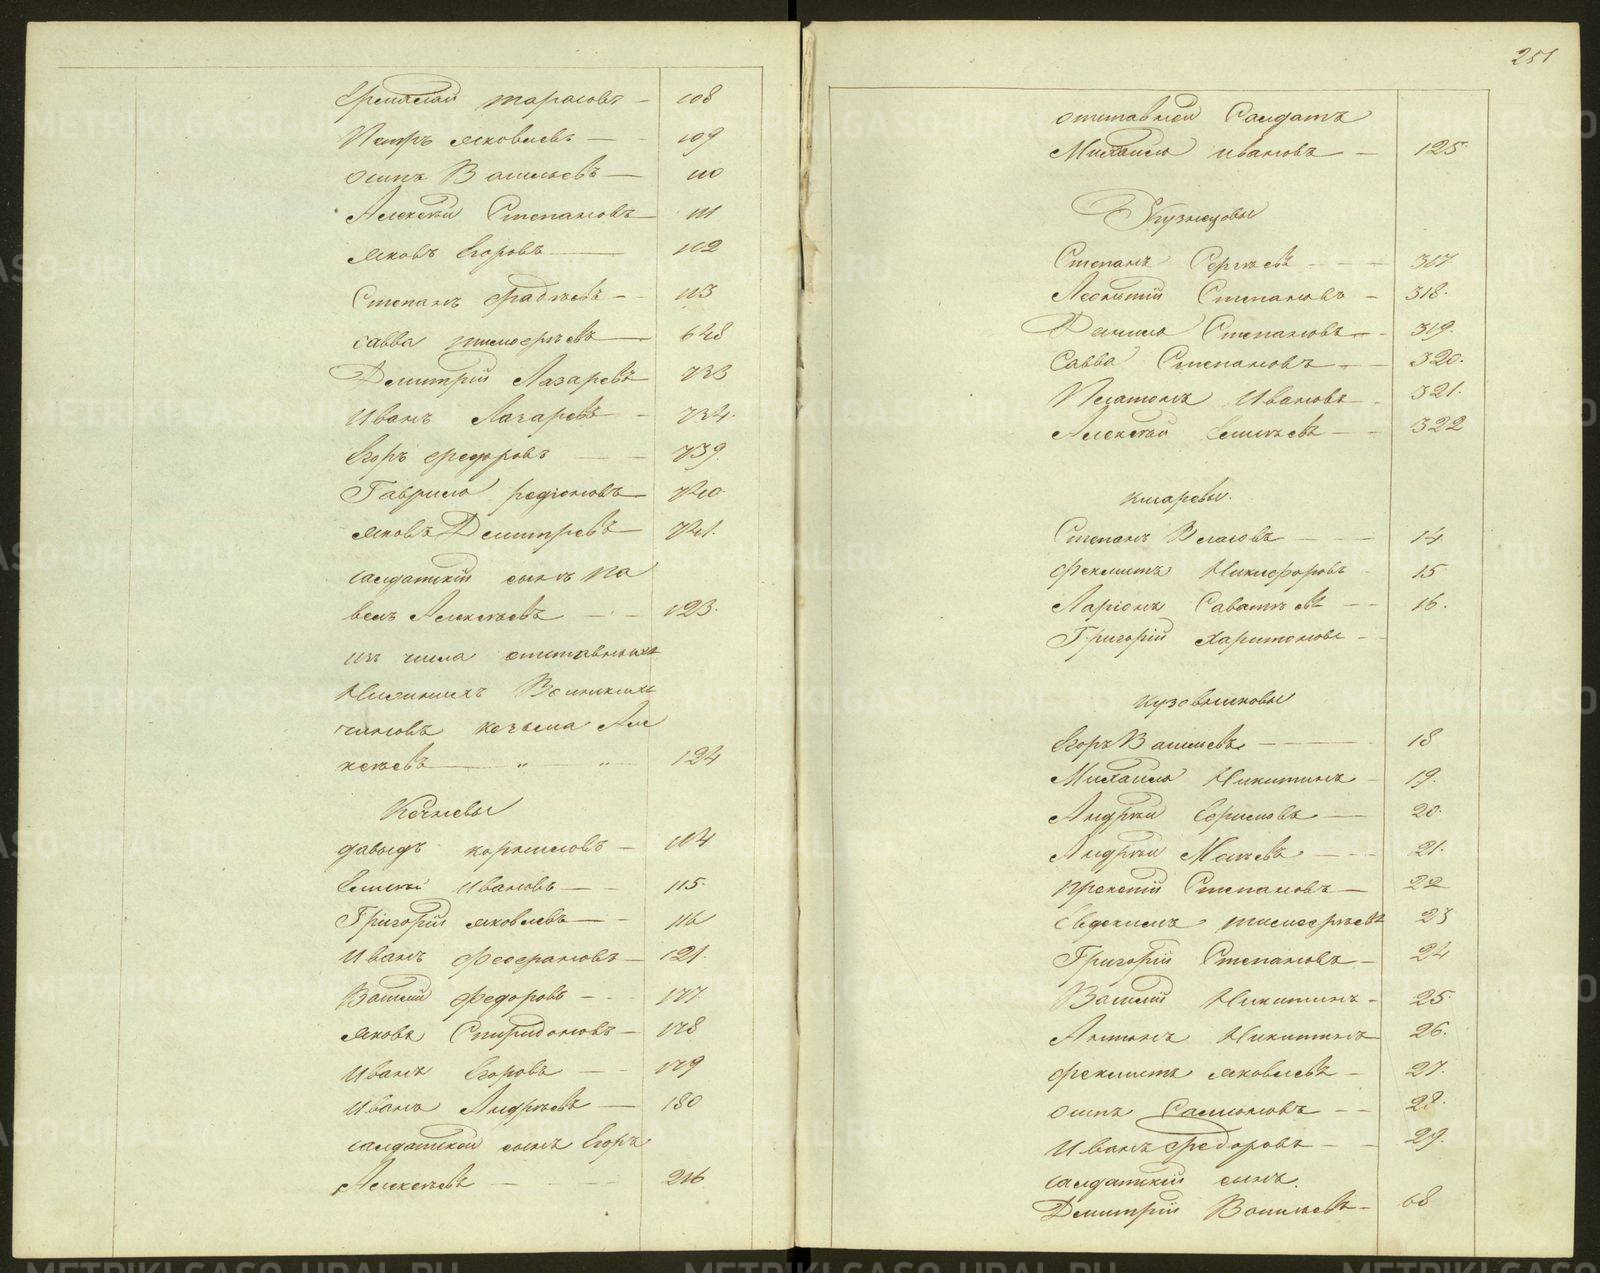 Ермолай Тарасовъ — 108
Петръ Яковлевъ — 109
Осипъ Васильевъ — 110
Алексѣй Степановъ — 111
Яковъ Егоровъ — 112
Степанъ Фадѣевъ — 113
Савва Тимофѣевъ — 648
Дмитрій Лазаревъ 733
Иванъ Лазаревъ — 734.
Егоръ Федоровъ — 739.
Гаврило Родіоновъ — 740.
Яковъ Дмитревъ — 741.
салдатскій сынъ Па
велъ Алексѣевъ — 123.
изъ числа отставныхъ
Нижнихъ Воинскихъ
чиновъ Козьма Але
ксѣевъ — „ „ — 124
Давыдъ Корниловъ — 114
Елисѣй Ивановъ — 115.
Григорій Яковлевъ — 116
Иванъ Феофановъ — 121.
Василій Федоровъ — 177
Яковъ Спиридоновъ — 178
Иванъ Егоровъ — 179
Иванъ Андрѣевъ — 180
салдатской сынъ Егоръ
Алексѣевъ — 216
251
отставной Салдатъ
Михайло Ивановъ — 125
Кузнецовы
Степанъ Сергѣевъ — 317.
Леонтій Степановъ — 318.
Данило Степановъ — 319.
Савва Степановъ — 320.
Платонъ Ивановъ — 321.
Алексѣй Елисѣевъ — 322
Степанъ Власовъ — 14
Феклистъ Никифоровъ 15
Ларіонъ Саватѣевъ — 16.
Григорій Харитоновъ —
Кузовниковы
Егоръ Васильевъ — 18
Михайло Никитинъ — 19.
Андрѣй Ефимовъ — 20.
Андрѣй Моисѣевъ — 21.
Прокопій Степановъ — 22
Евдокимъ Тимофѣевъ 23
Григорій Степановъ — 24
Василій Никитинъ — 25.
Антонъ Никитинъ 26.
Феклистъ Яковлевъ — 27.
Осипъ Самсоновъ — 28.
Иванъ Федоровъ — 29.
салдатскій сынъ.
Дмитрій Васильевъ — 68
METRIKI.GASO-URAL.RU